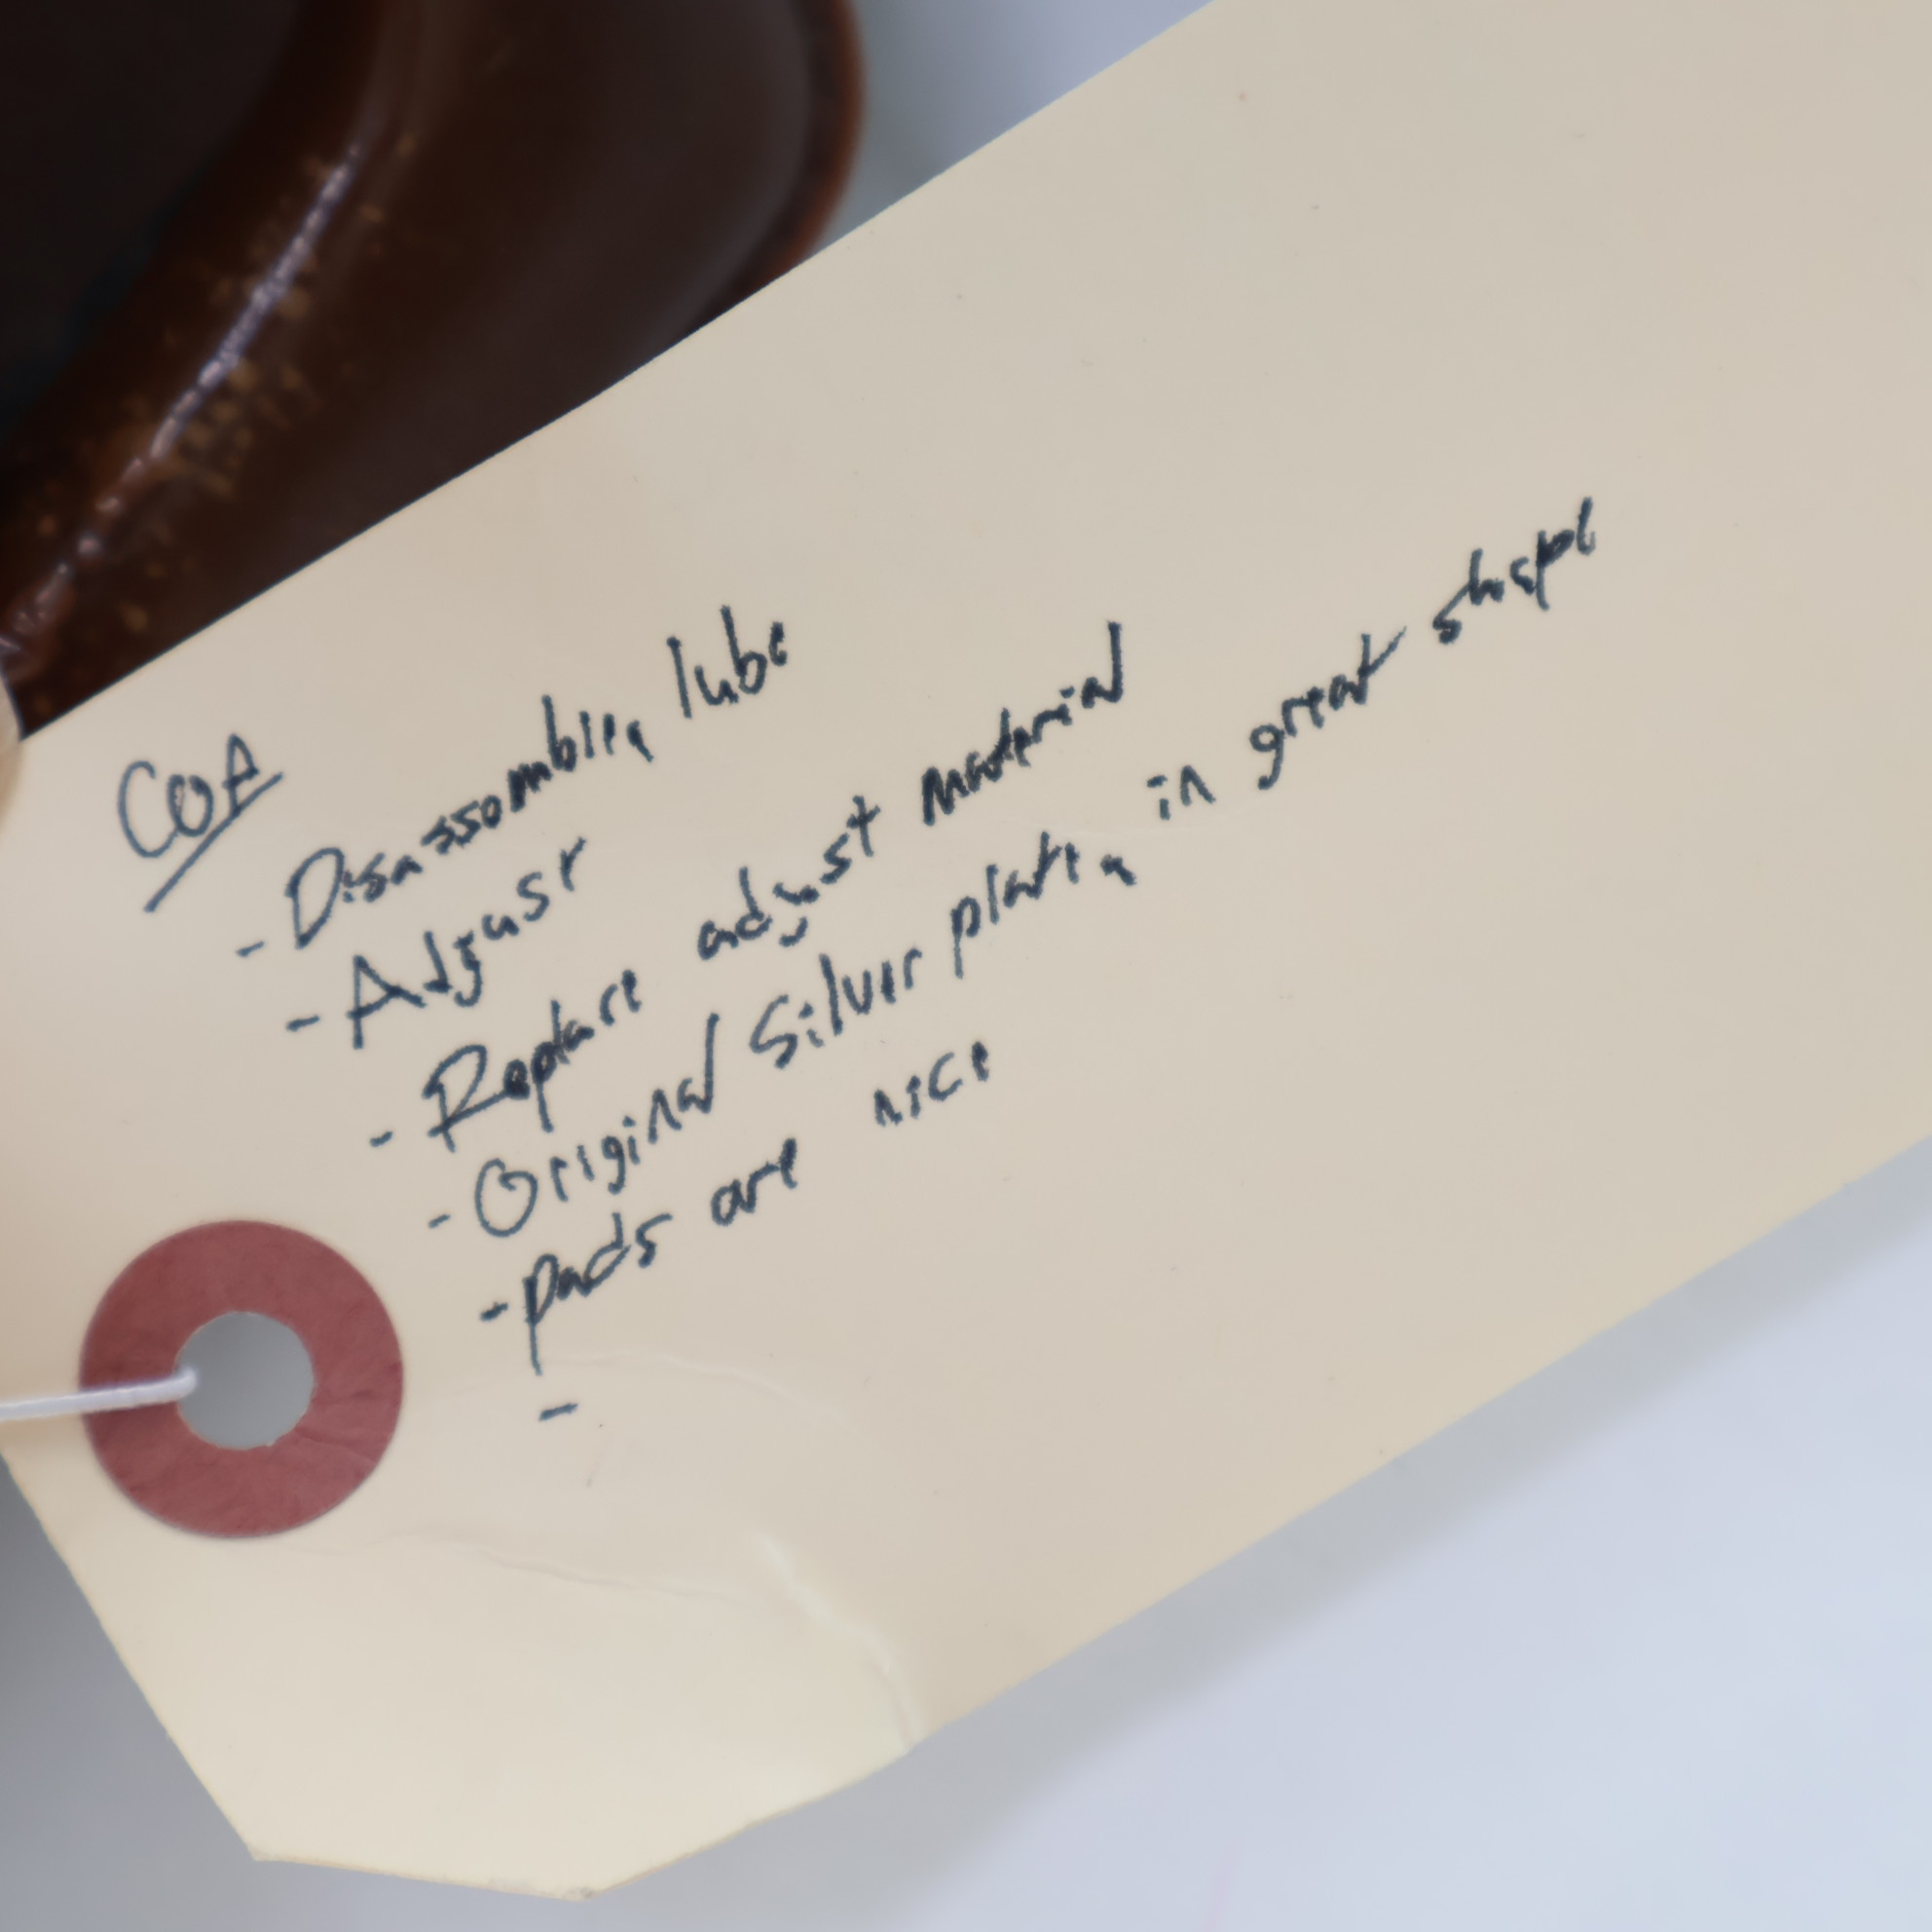 COA
- Disassomble, lube
- Adjust
- Replace adjust material
- Original Silver plate, in great shape
- pads are nice
-